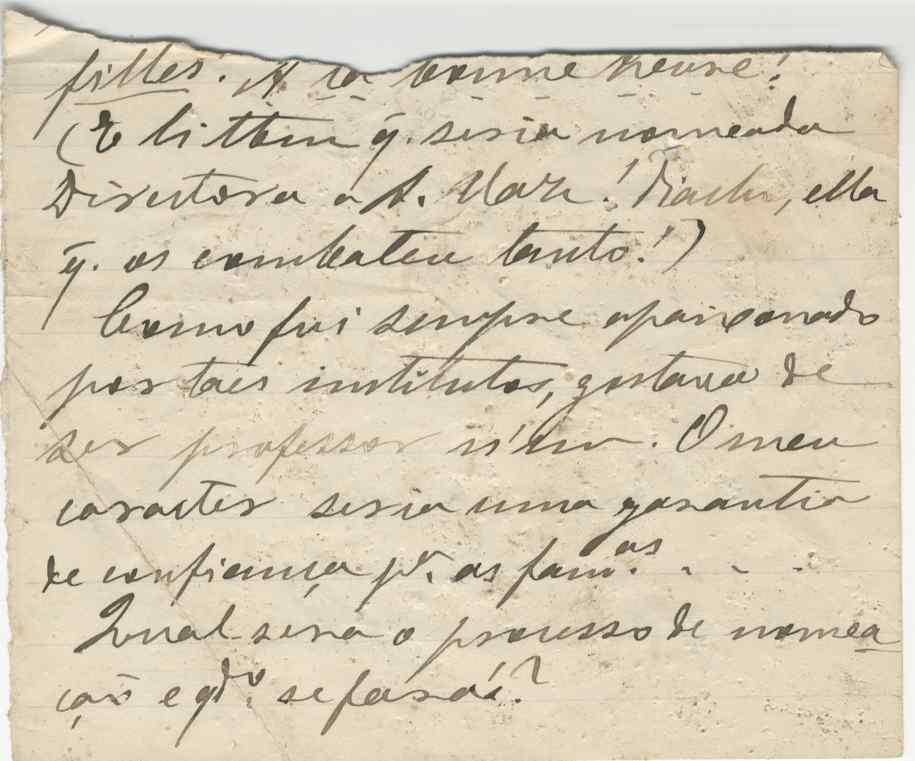 filles. A la bonne heure!
(E li tbm q̃. seria nomeada
Directora a A. Vaz! Diacho, ella
q̃. os combateu tanto!)
Como fui sempre apaixonado
por taes institutos, gostava de
ser professor n'um. O meu
caracter seria uma garantia
de confiança pª. as famas. . . .
Qual será o processo de nomea
ção e qdº. se fará?